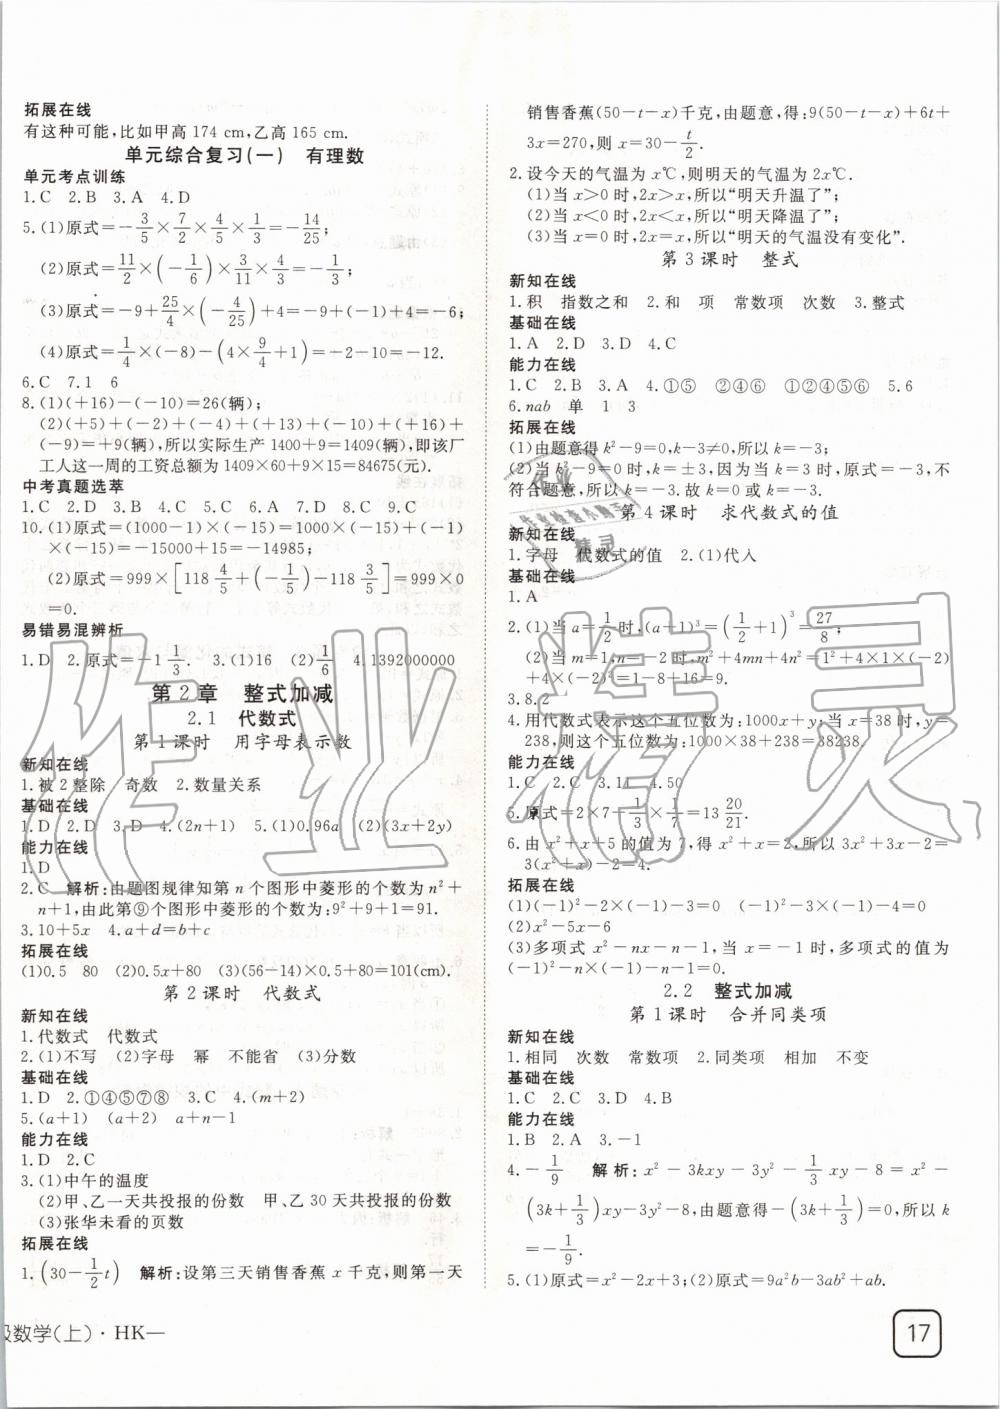 拓展在线
有这种可能,比如甲高 174 cm,乙高 165 cm.
单元综合复习(一) 有理数
单元考点训练
1.C 2.B 3.A 4.D
5.(1)原式=-3/5×7/2×4/5×1/3=-14/25;
(2)原式=11/2×(-1/6)×3/11×4/3=-1/3;
(3)原式=-9+25/4×(-4/25)+4=-9+(-1)+4=-6;
(4)原式=1/4×(-8)-(4×9/4+1)=-2-10=-12.
6.C 7.1 6
8.(1)(+16)-(-10)=26(辆);
(2)(+5)+(-2)+(-4)+(+13)+(-10)+(+16)+
(-9)=+9(辆),所以实际生产 1400+9=1409(辆),即该厂
工人这一周的工资总额为 1409×60+9×15=84675(元).
中考真题选萃
1.C 2.D 3.B 4.A 5.C 6.D 7.D 8.C 9.C
10.(1)原式=(1000-1)×(-15)=1000×(-15)+(-1)
×(-15)=-15000+15=-14985;
(2)原式=999×[118 4/5+(-1/5)-118 3/5]=999×0
=0.
易错易混辨析
1.D 2.原式=-1 1/3. 3.(1)16 (2)1/6 4.1392000000
第 2 章 整式加减
2.1 代数式
第 1 课时 用字母表示数
新知在线
1.被 2 整除 奇数 2.数量关系
基础在线
1.D 2.D 3.D 4.(2n+1) 5.(1)0.96a (2)(3x+2y)
能力在线
1.D
2.C 解析:由题图规律知第 n 个图形中菱形的个数为 n²+
n+1,由此第⑨个图形中菱形的个数为:9²+9+1=91.
3.10+5x 4.a+d=b+c
拓展在线
(1)0.5 80 (2)0.5x+80 (3)(56-14)×0.5+80=101(cm).
第 2 课时 代数式
新知在线
1.代数式 代数式
2.(1)不写 (2)字母 幂 不能省 (3)分数
基础在线
1.D 2.①④⑤⑦⑧ 3.C 4.(m+2)
5.(a+1) (a+2) a+n-1
能力在线
1.D 2.C
3.(1)中午的温度
(2)甲、乙一天共投报的份数 甲、乙 30 天共投报的份数
(3)张华未看的页数
拓展在线
1.(30-1/2t) 解析:设第三天销售香蕉 x 千克,则第一天
级数学(上)·HK—
销售香蕉(50-t-x)千克,由题意,得:9(50-t-x)+6t+
3x=270,则 x=30-t/2.
2.设今天的气温为 x℃,则明天的气温为 2x℃.
(1)当 x>0 时,2x>x,所以“明天升温了”;
(2)当 x<0 时,2x<x,所以“明天降温了”;
(3)当 x=0 时,2x=x,所以“明天的气温没有变化”.
第 3 课时 整式
新知在线
1.积 指数之和 2.和 项 常数项 次数 3.整式
基础在线
1.A 2.D 3.D 4.C
能力在线
1.C 2.B 3.A 4.①⑤ ②④⑥ ①②④⑤⑥ 5.6
6.nab 单 1 3
拓展在线
(1)由题意得 k²-9=0,k-3≠0,所以 k=-3;
(2)当 k²-9=0 时,k=±3,因为当 k=3 时,原式=-3,不
符合题意,所以 k=-3.故 k=0 或 k=-3.
第 4 课时 求代数式的值
新知在线
1.字母 代数式的值 2.(1)代入
基础在线
1.A
2.(1)当 a=1/2时,(a+1)³=(1/2+1)³=27/8;
(2)当 m=1,n=-2 时,m²+4mn+4n²=1²+4×1×(-2)
+4×(-2)²=1-8+16=9.
3.8.2
4.用代数式表示这个五位数为:1000x+y;当 x=38 时,y=
238,则这个五位数为:1000×38+238=38238.
能力在线
1.C 2.C 3.11 4.50
5.原式=2×7+1/3×1/7=13 20/21.
6.由 x²+x+5 的值为 7,得 x²+x=2,所以 3x²+3x-2=
3(x²+x)-2=4.
拓展在线
(1)(-1)²-2×(-1)-3=0 (-1)²-3×(-1)-4=0
(2)x²-5x-6
(3)多项式 x²-nx-n-1,当 x=-1 时,多项式的值为
(-1)²-n×(-1)-n-1=0.
2.2 整式加减
第 1 课时 合并同类项
新知在线
1.相同 次数 常数项 2.同类项 相加 不变
基础在线
1.C 2.D 3.D 4.B
能力在线
1.B 2.A 3.-1
4.-1/9 解析:x²-3kxy-3y²-1/3xy-8=x²-
(3k+1/3)xy-3y²-8,由题意得-(3k+1/3)=0,所以 k=
-1/9.
5.(1)原式=-2x+3;(2)原式=9a²b-3ab²+ab.
17
作业精灵